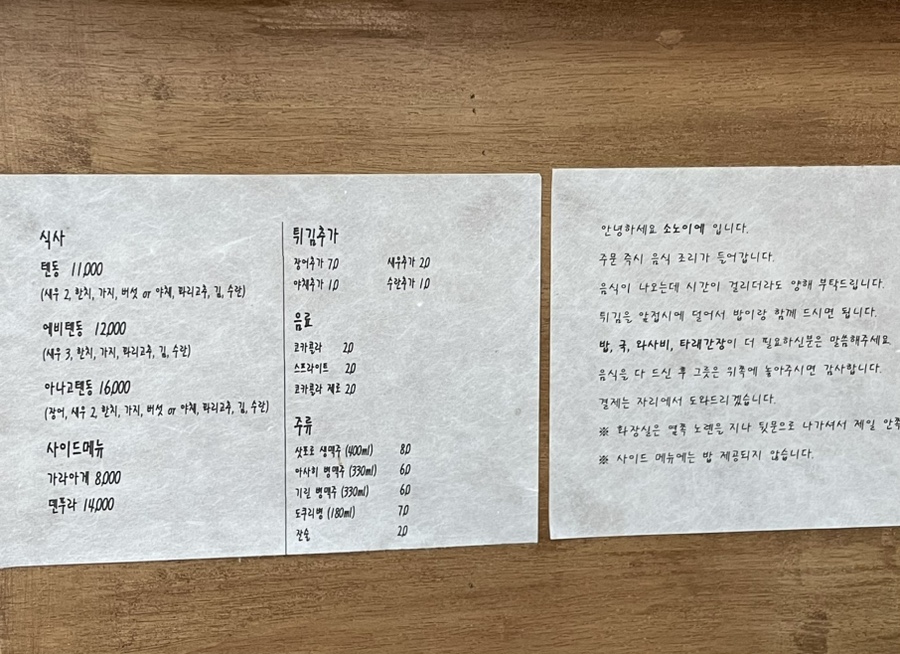 식사
텐동 11,000
(새우 2, 한치, 가지, 버섯 or 야채, 꽈리고추, 김, 수란)
에비텐동 12,000
(새우 3, 한치, 가지, 꽈리고추, 김, 수란)
아나고텐동 16,000
(장어, 새우 2, 한치, 가지, 버섯 or 야채, 꽈리고추, 김, 수란)
사이드메뉴
가라아게 8,000
덴푸라 14,000
튀김추가
장어추가 7,0 새우추가 2,0
야채추가 1,0 수란추가 1,0
음료
코카콜라 2,0
스프라이트 2,0
코카콜라 제로 2,0
주류
삿포로 생맥주 (400ml) 8,0
아사히 병맥주 (330ml) 6,0
기린 병맥주 (330ml) 6,0
도쿠리병 (180ml) 7,0
잔술 2,0
안녕하세요 소노이에 입니다.
주문 즉시 음식 조리가 들어갑니다.
음식이 나오는데 시간이 걸리더라도 양해 부탁드립니다.
튀김을 앞접시에 덜어서 밥이랑 함께 드시면 됩니다.
밥, 국, 와사비, 타래간장이 더 필요하신분은 말씀해주세요
음식을 다 드신 후 그릇은 위쪽에 놓아주시면 감사합니다.
결제는 자리에서 도와드리겠습니다.
※ 화장실은 옆쪽 노렌을 지나 뒷문으로 나가셔서 제일 안쪽
※ 사이드 메뉴에는 밥 제공되지 않습니다.